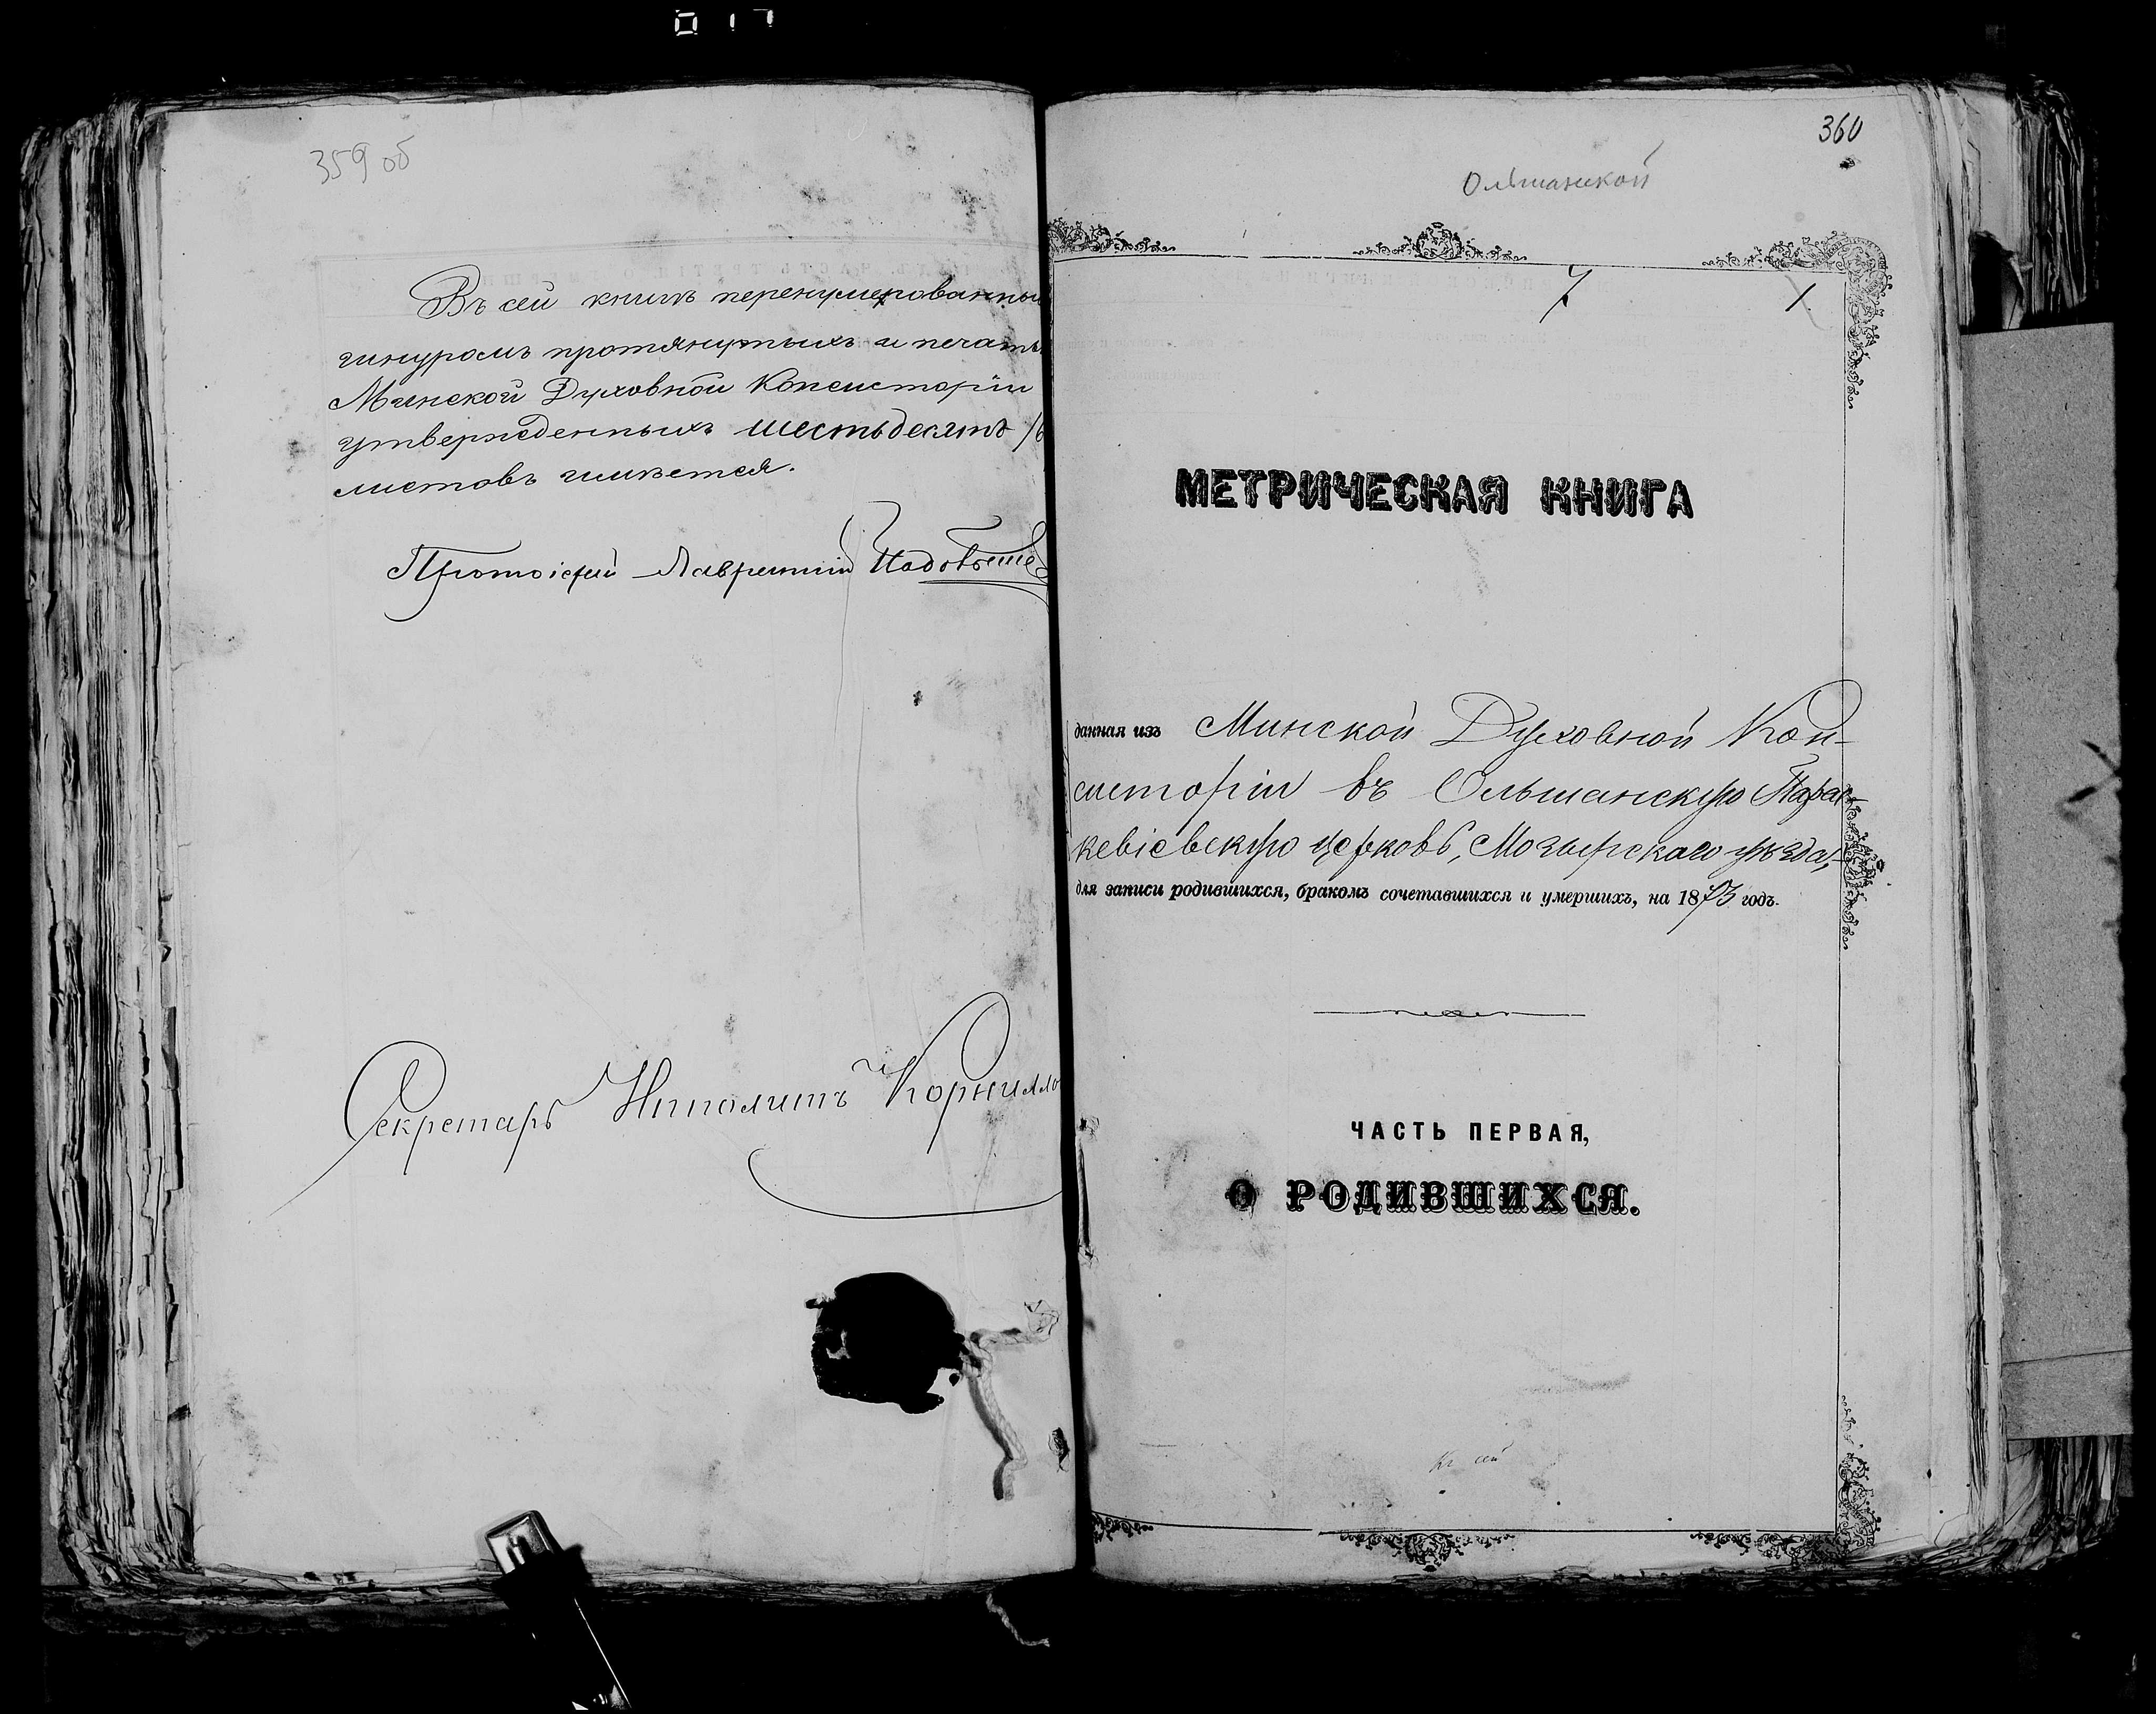 359 об
Въ сей книгѣ перенумерованны
шнуромъ протянутыхъ и печать
Минской Духовной Консисторіи
утвержденныхъ шестьдесятъ /6
листовъ имѣется.
Протоіерей Лаврентій
Секретарь Ипполитъ Корнилло
360
Ольшанской
7 1.
МЕТРИЧЕСКАЯ КНИГА
данная изъ Минской Духовной Кон-
систоріи въ Ольшанскую Парас-
кевіевскую церковь, Мозырскаго уѣзда,
для записи родившихся, бракомъ сочетавшихся и умершихъ, на 1873 годъ.
ЧАСТЬ ПЕРВАЯ,
О РОДИВШИХСЯ.
сей